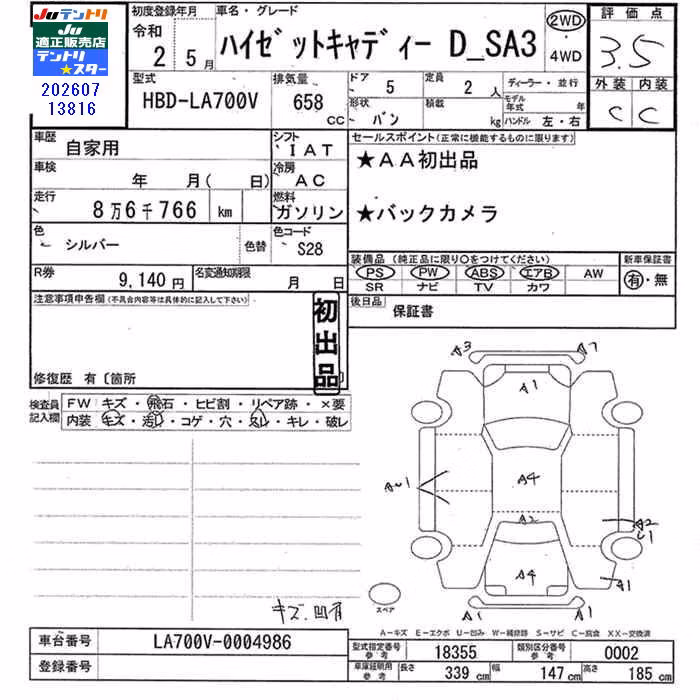 Juテントリ
Ju
適正販売店
テントリ
★スター
202607
13816
初度登録年月 車名・グレード
令和
2年 5月
ハイゼットキャディー D_SA3
2WD
・
4WD
評価点
3.5
外装 内装
C C
型式
HBD-LA700V
排気量
658
CC
ドア
5
定員
2人
ディーラー・並行
形状
バン
積載
kg
モデル年式 年
ハンドル 左・右
車歴
自家用
シフト
IAT
車検
年 月( 日)
冷房
AC
走行
8万6千766 km
燃料
ガソリン
色
シルバー
色替
色コード
S28
R券
9,140円
名変通知期限
月 日
セールスポイント(正常に機能するものに限ります)
★AA初出品
★バックカメラ
装備品(純正品に限り○をつけてください)
PS PW ABS エアB AW
SR ナビ TV カワ
新車保証書
有・無
後日品
保証書
注意事項申告欄(不具合内容等は具体的に記入して下さい)
初出品
修復歴 有〔箇所
検査員
記入欄
FW キズ・飛石・ヒビ割・リペア跡・×要
内装 キズ・汚レ・コゲ・穴・スレ・キレ・破レ
A3 A7
A1
A4
A2
A4
A1
A2
U1
A1
A1 A1
スペア
キズ、凹有
A−キズ E−エクボ U−凹み W−補修跡 S−サビ C−腐食 XX−交換済
車台番号
LA700V-0004986
登録番号
型式指定番号
参考
18355
類別区分番号
参考
0002
車庫証明用
参考
長さ 339cm 幅 147cm 高さ 185cm